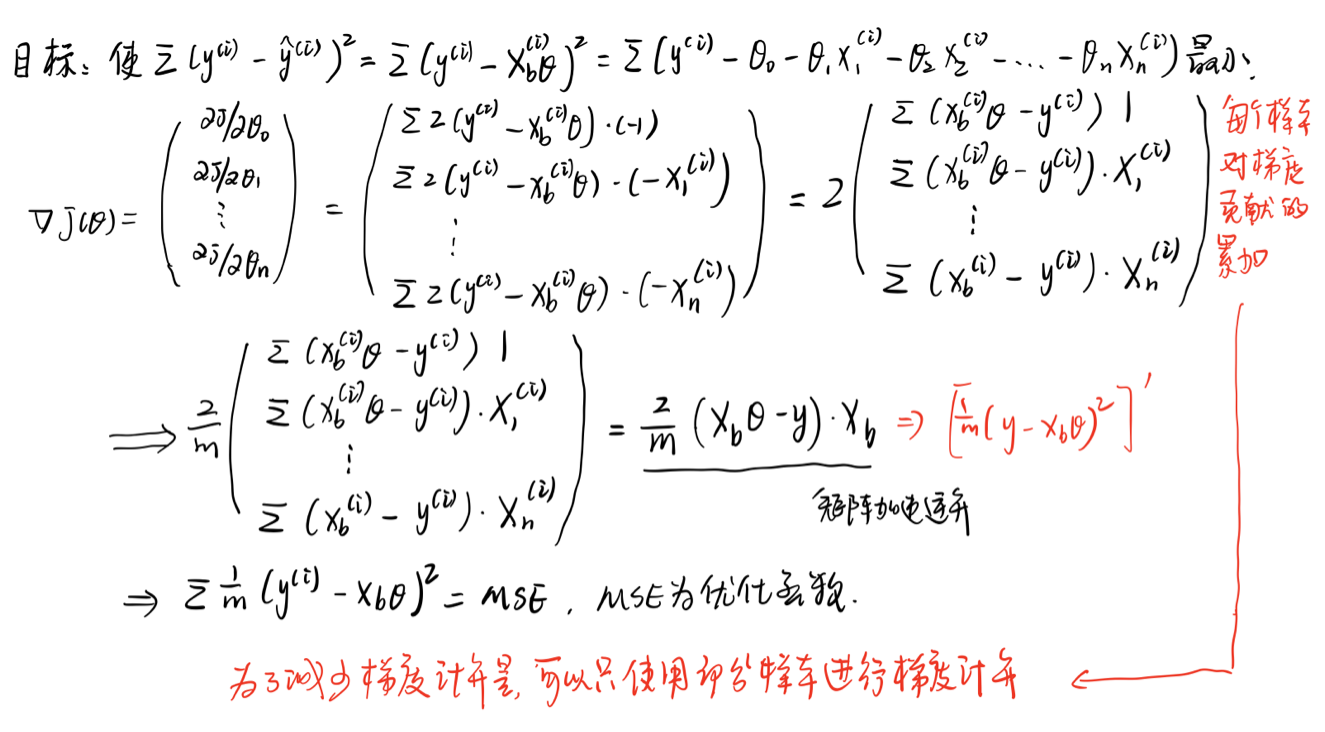 目标：使 Σ(y^(i) - ŷ^(i))² = Σ(y^(i) - X_b^(i)θ)² = Σ(y^(i) - θ₀ - θ₁X₁^(i) - θ₂X₂^(i) - ... - θₙXₙ^(i)) 最小.
∇J(θ) = ( ∂J/∂θ₀ ∂J/∂θ₁ ⋮ ∂J/∂θₙ ) = ( Σ2(y^(i) - X_b^(i)θ)·(-1) Σ2(y^(i) - X_b^(i)θ)·(-X₁^(i)) ⋮ Σ2(y^(i) - X_b^(i)θ)·(-Xₙ^(i)) ) = 2 ( Σ(X_b^(i)θ - y^(i)) 1 Σ(X_b^(i)θ - y^(i))·X₁^(i) ⋮ Σ(X_b^(i) - y^(i))·Xₙ^(i) )
每个样本
对梯度
贡献的
累加
⟹ 2/m ( Σ(X_b^(i)θ - y^(i)) 1 Σ(X_b^(i)θ - y^(i))·X₁^(i) ⋮ Σ(X_b^(i) - y^(i))·Xₙ^(i) ) = 2/m (X_bθ - y)·X_b ⇒ [1/m(y - X_bθ)²]′
矩阵加速运算
⇒ Σ 1/m (y^(i) - X_bθ)² = MSE , MSE为优化函数.
为了减少梯度计算量,可以只使用部分样本进行梯度计算